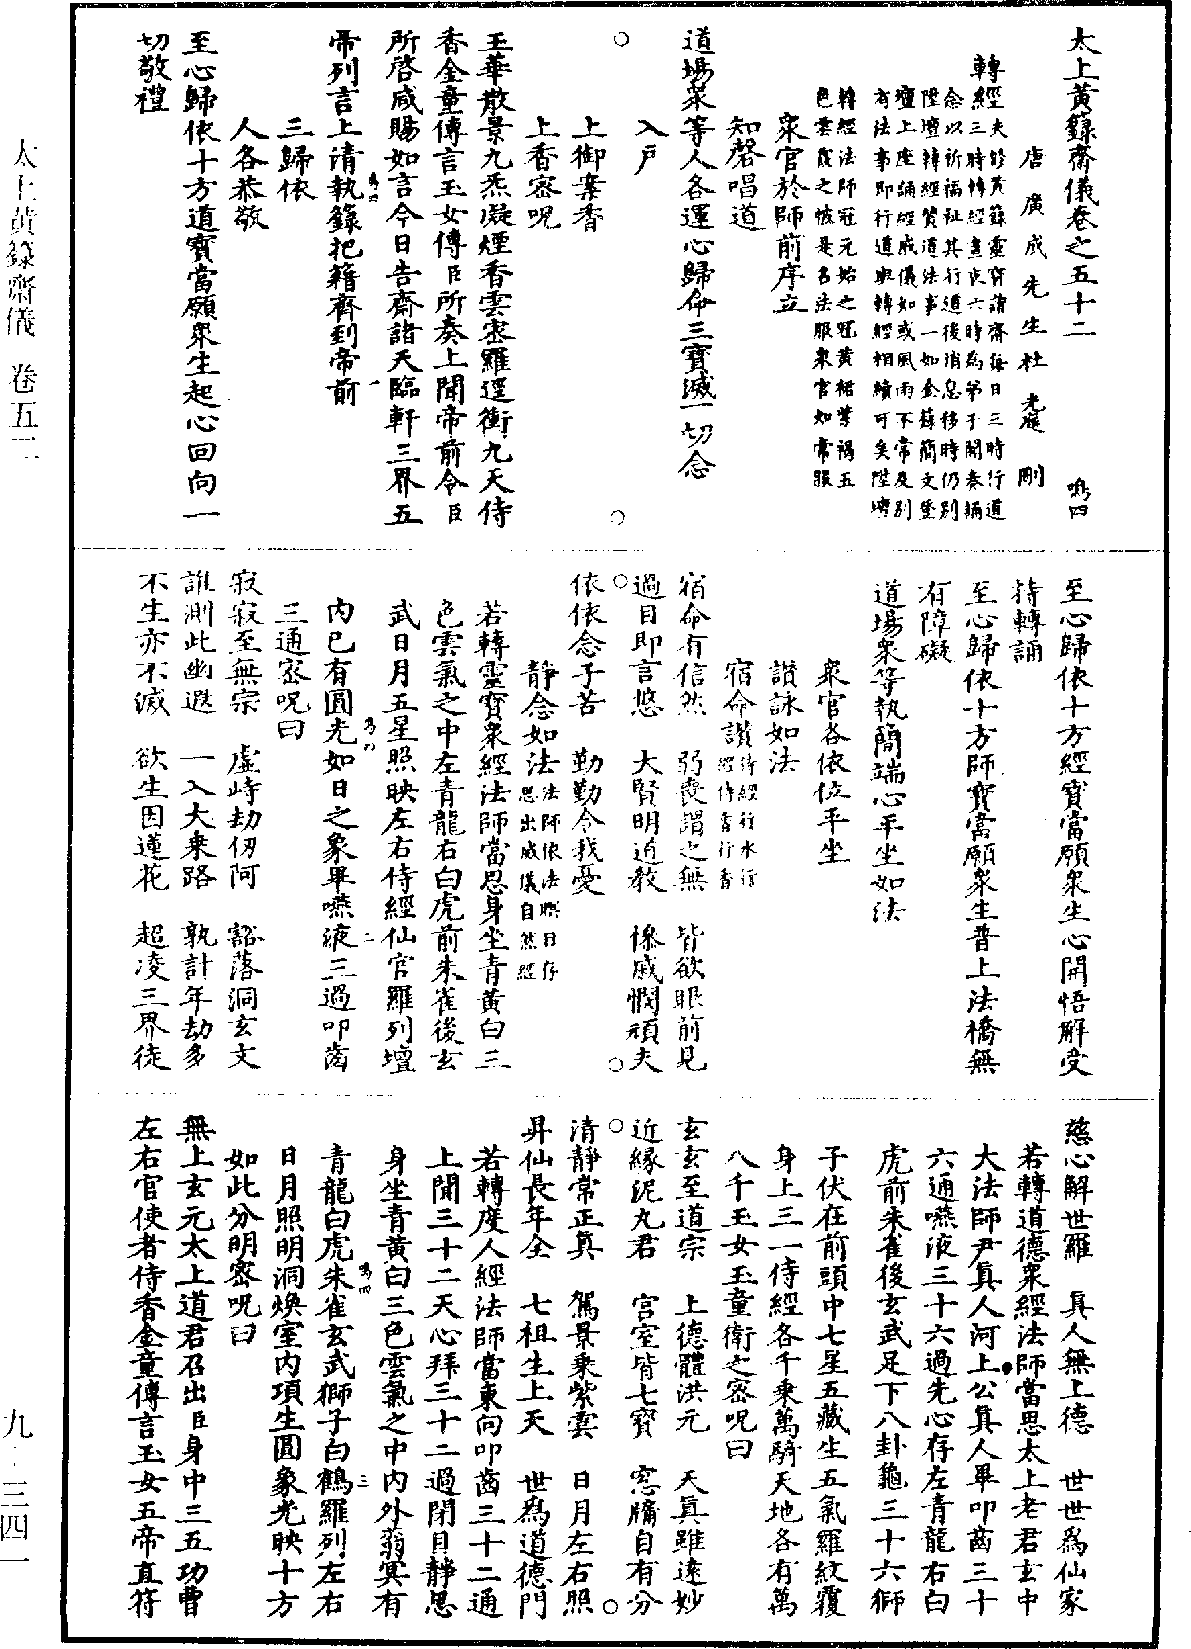 太上黃籙齋儀卷之五十二　鳴四
唐廣成先生杜光庭刪
轉經夫修黃籙靈寶諸齋每日三時行道
三時轉經晝夜六時為弟子開奏誦
念以祈福祉其行道後消息移時仍別
陞壇轉經贊道法事一如金籙簡文登
壇上座誦經威儀如或風雨不常度別
有法事即行道與轉經相續可矣陞壇
轉經法師冠元始之冠黃裙紫褐五
色雲霞之帔是名法服衆官如常服
衆官於師前序立
知磬唱道
道場衆等人各運心歸命三寶滅一切念
入戶
上御案香
上香密呪
玉華散景九炁凝煙香雲密羅逕衝九天侍
香金童傳言玉女傳臣所奏上聞帝前令臣
所啓咸賜如言今日告齋諸天臨軒三界五
帝列言上清執籙把籍齊到帝前
鳴四　一
三歸依
人各恭敬
至心歸依十方道寶當願衆生起心回向一
切敬禮
至心歸依十方經寶當願衆生心開悟解受
持轉誦
至心歸依十方師寶當願衆生普上法橋無
有障礙
道場衆等執簡端心平坐如法
衆官各依位平坐
讚詠如法
宿命讚侍經行水行
經侍香行香
宿命有信然　弱喪謂之無　皆欲眼前見
過目即言悠　大賢明道教　慘戚憫頑夫
依依念子苦　勤勤令我憂
靜念如法法師依法瞑目存
思出威儀自然經
若轉靈寶衆經法師當思身坐青黃白三
色雲氣之中左青龍右白虎前朱雀後玄
武日月五星照映左右侍經仙官羅列壇
鳴四　二
內已有圓光如日之象畢嚥液三過叩齒
三通密呪曰
寂寂至無宗　虛峙劫仞阿　豁落洞玄文
誰測此幽遐　一入大乘路　孰計年劫多
不生亦不滅　欲生因蓮花　超凌三界徒
慈心解世羅　真人無上德　世世為仙家
若轉道德衆經法師當思太上老君玄中
大法師尹真人河上公真人畢叩齒三十
六通嚥液三十六過先心存左青龍右白
虎前朱雀後玄武足下八卦龜三十六獅
子伏在前頭中七星五藏生五氣羅紋覆
身上三一侍經各千乘萬騎天地各有萬
八千玉女玉童衛之密呪曰
玄玄至道宗　上德體洪元　天真雖遠妙
近緣泥丸君　宮室皆七寶　窓牖自有分
清靜常正真　駕景乘紫雲　日月左右照
昇仙長年全　七祖生上天　世為道德門
若轉度人經法師當東向叩齒三十二通
上聞三十二天心拜三十二過閉目靜思
身坐青黃白三色雲氣之中內外翁冥有
青龍白虎朱雀玄武獅子白鶴羅列左右
鳴四　三
日月照明洞煥室內項生圓象光映十方
如此分明密呪曰
無上玄元太上道君召出臣身中三五功曹
左右官使者侍香金童傳言玉女五帝直符
太上黃籙齋儀　卷五二
九‧三四一